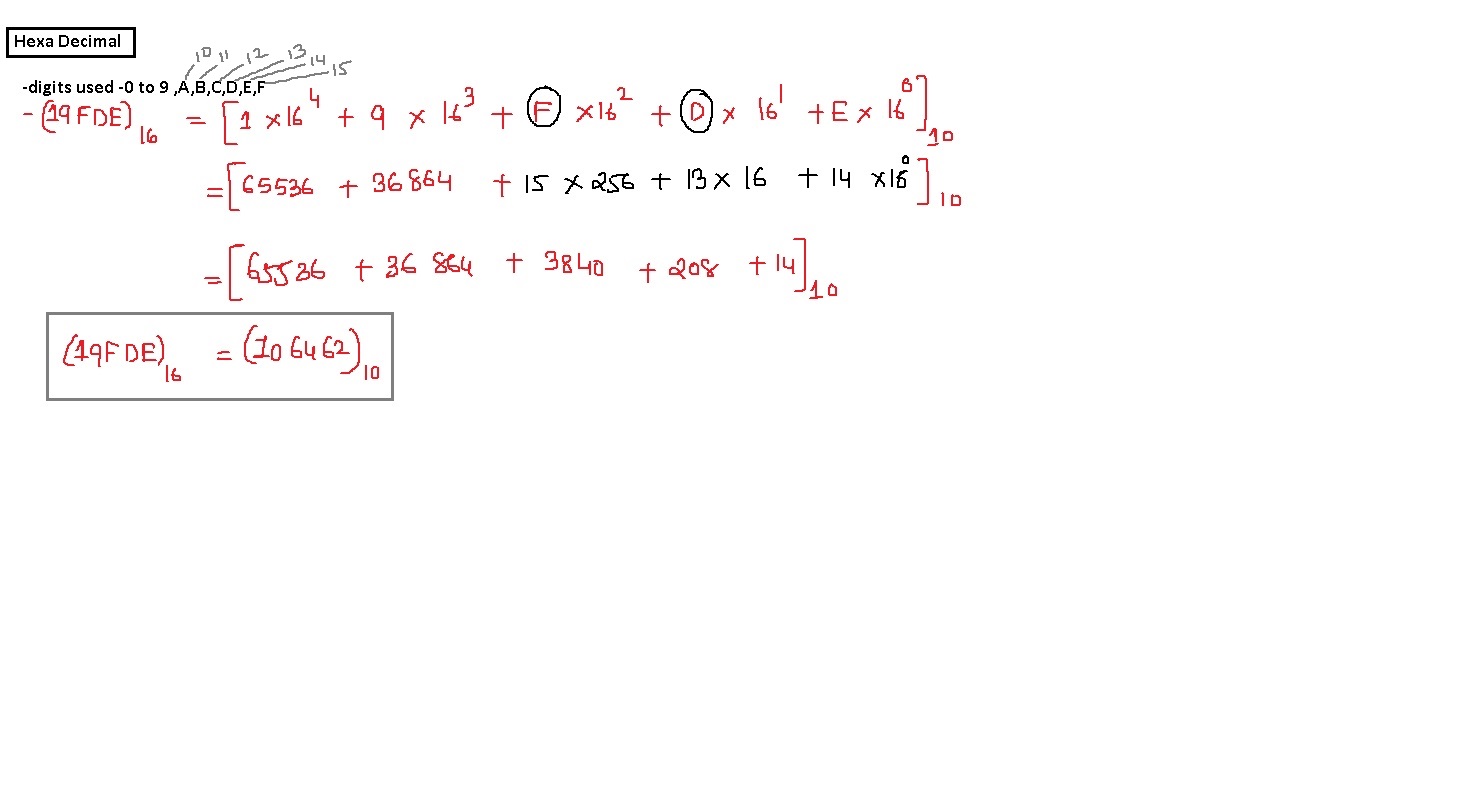 Hexa Decimal
10 11 12 13 14 15
-digits used -0 to 9 ,A,B,C,D,E,F
- (19FDE)₁₆ = [1 × 16⁴ + 9 × 16³ + F × 16² + D × 16¹ + E × 16⁰]₁₀
= [65536 + 36864 + 15 × 256 + 13 × 16 + 14 × 16⁰]₁₀
= [65536 + 36864 + 3840 + 208 + 14]₁₀
(19FDE)₁₆ = (106462)₁₀